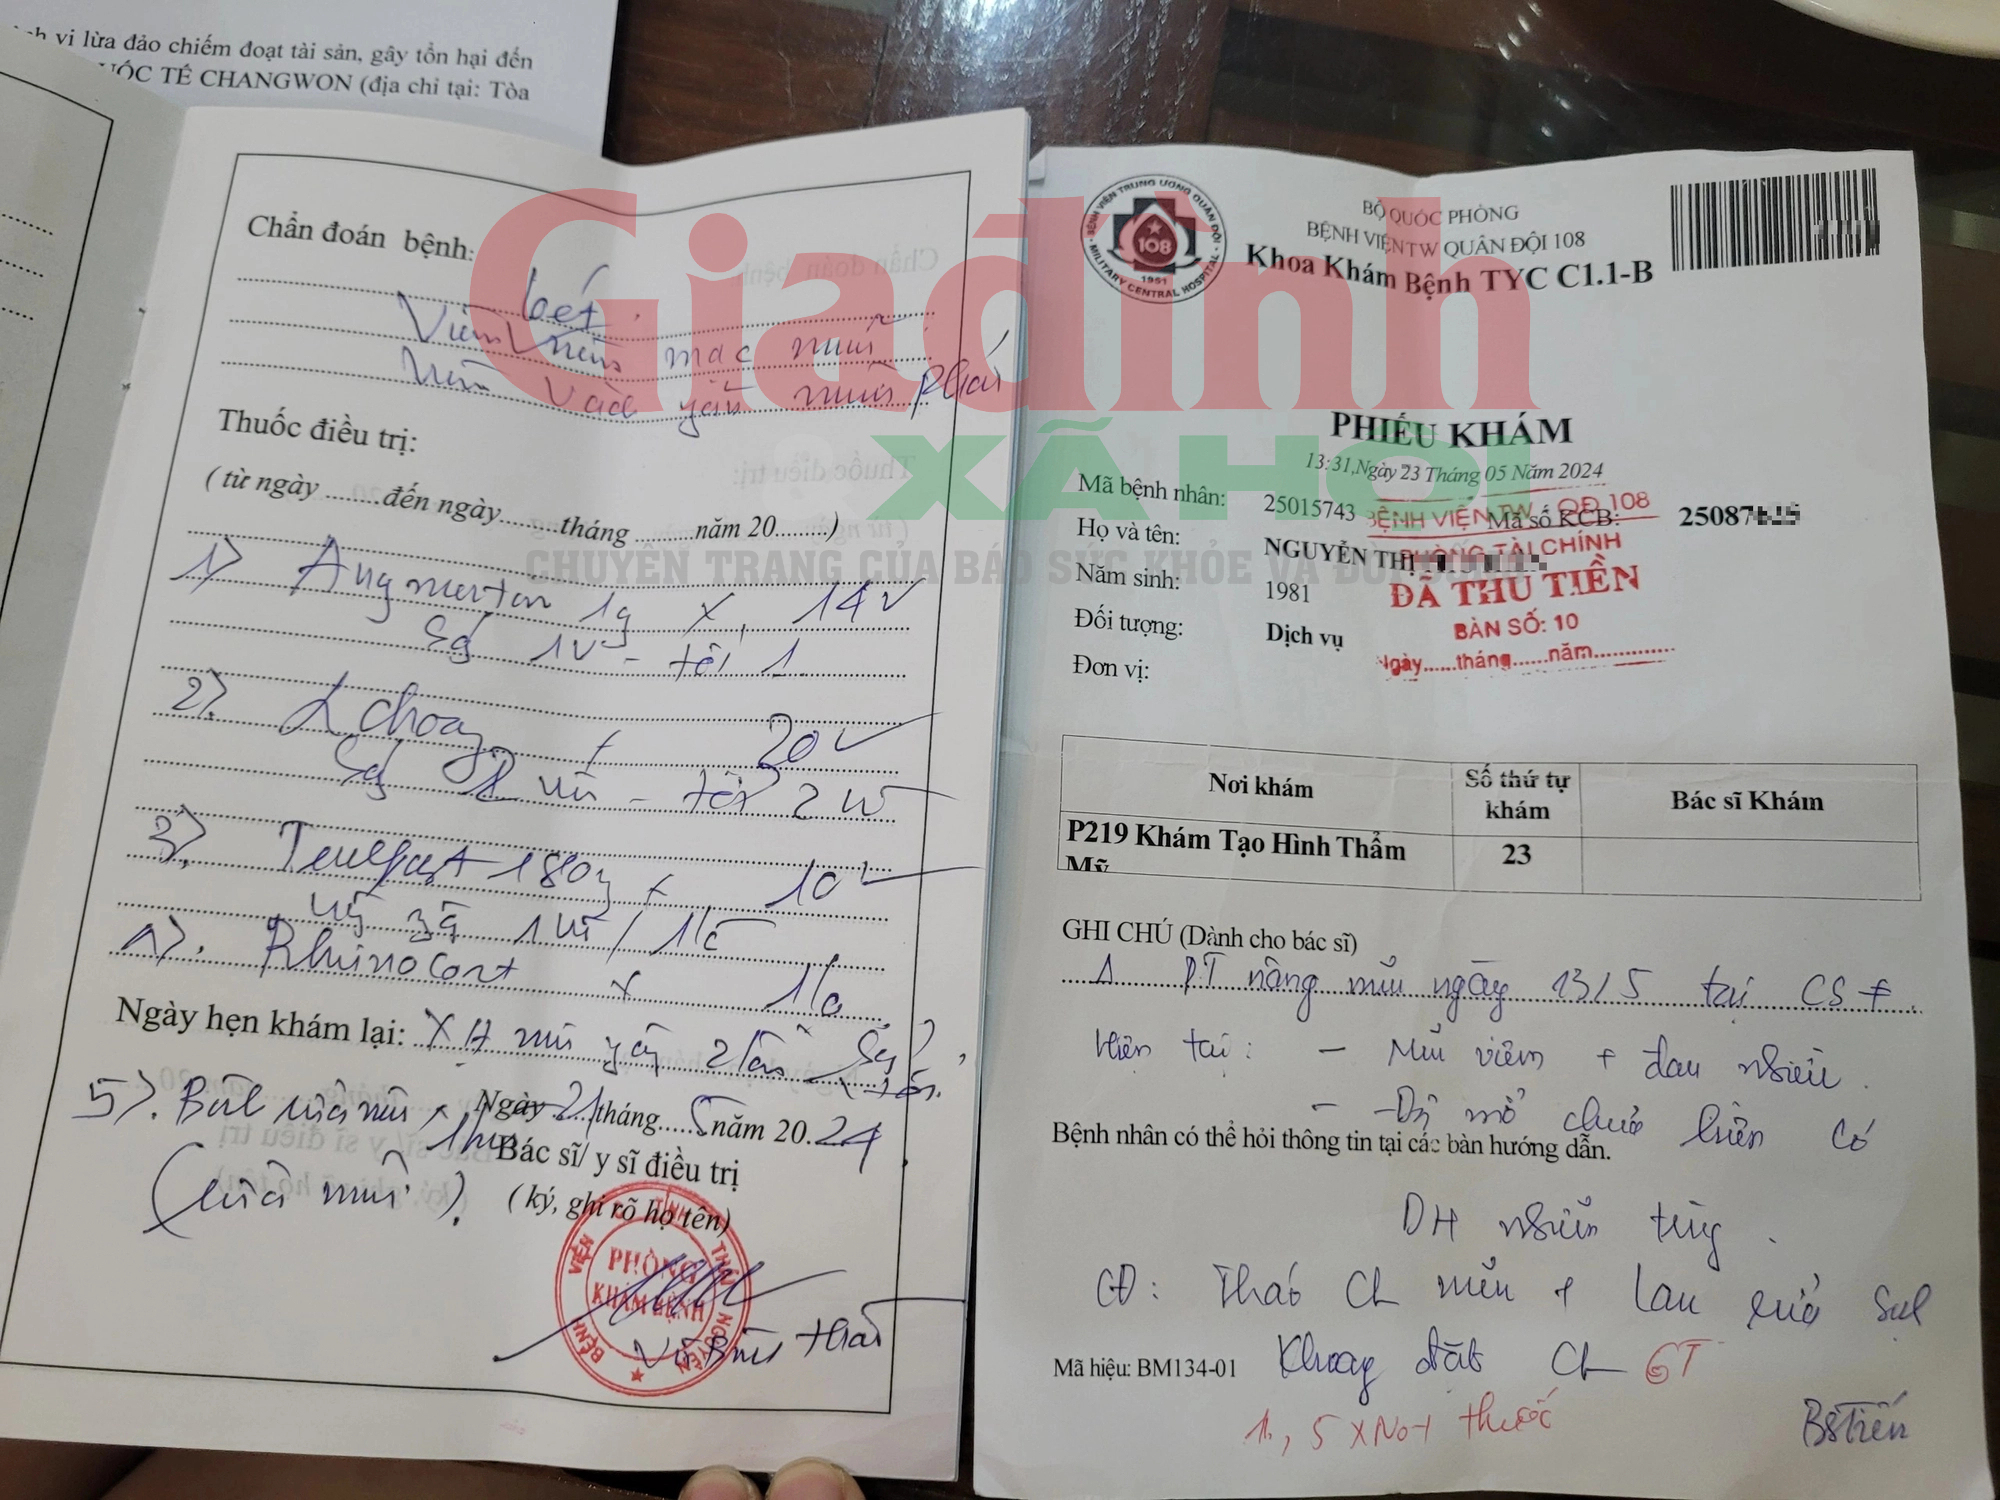 vi lừa đảo chiếm đoạt tài sản, gây tổn hại đến
UỐC TẾ CHANGWON (địa chỉ tại: Tòa
Chẩn đoán bệnh:
loét
Viêm niêm mạc mũi
vách mũi phải
Thuốc điều trị:
( từ ngày ........đến ngày........tháng .........năm 20........)
1) Augmentin 1g x 14v
Sg 1v - tối 1
2) 20v
Sg 2 - tối 2
3) Telfast 180 x 10v
1
Rhinocort x 1lọ
Ngày hẹn khám lại: XH mũi 2 lần
5) mũi x
Ngày 21 tháng 5 năm 2024
( mũi )
Bác sĩ/ y sĩ điều trị
( ký, ghi rõ họ tên)
BỆNH VIỆN TỈNH THÁI NGUYÊN
PHÒNG
KHÁM BỆNH
BỆNH VIỆN TRUNG ƯƠNG QUÂN ĐỘI
108
1951
MILITARY CENTRAL HOSPITAL
BỘ QUỐC PHÒNG
BỆNH VIỆN TW QUÂN ĐỘI 108
Khoa Khám Bệnh TYC C1.1-B
PHIẾU KHÁM
13:31,Ngày 23 Tháng 05 Năm 2024
Mã bệnh nhân: 25015743 Mã số KCB: 25087
Họ và tên: NGUYỄN THỊ
Năm sinh: 1981
Đối tượng: Dịch vụ
Đơn vị:
BỆNH VIỆN TW QĐ 108
PHÒNG TÀI CHÍNH
ĐÃ THU TIỀN
BÀN SỐ: 10
Ngày......tháng......năm.............
Nơi khám Số thứ tự khám Bác sĩ Khám
P219 Khám Tạo Hình Thẩm Mỹ 23
GHI CHÚ (Dành cho bác sĩ)
PT nâng mũi ngày 13/5 tại CS
Hiện tại: - Mũi viêm + đau nhiều.
- mổ chưa liền có
Bệnh nhân có thể hỏi thông tin tại các bàn hướng dẫn.
DH nhiễm trùng.
CĐ: Tháo CL mũi + rửa
Mã hiệu: BM134-01 Khoang đặt CL GT
5 x thuốc
BS Tiến
Giađình
XÃ HỘI
CHUYÊN TRANG CỦA BÁO SỨC KHỎE VÀ ĐỜI SỐNG